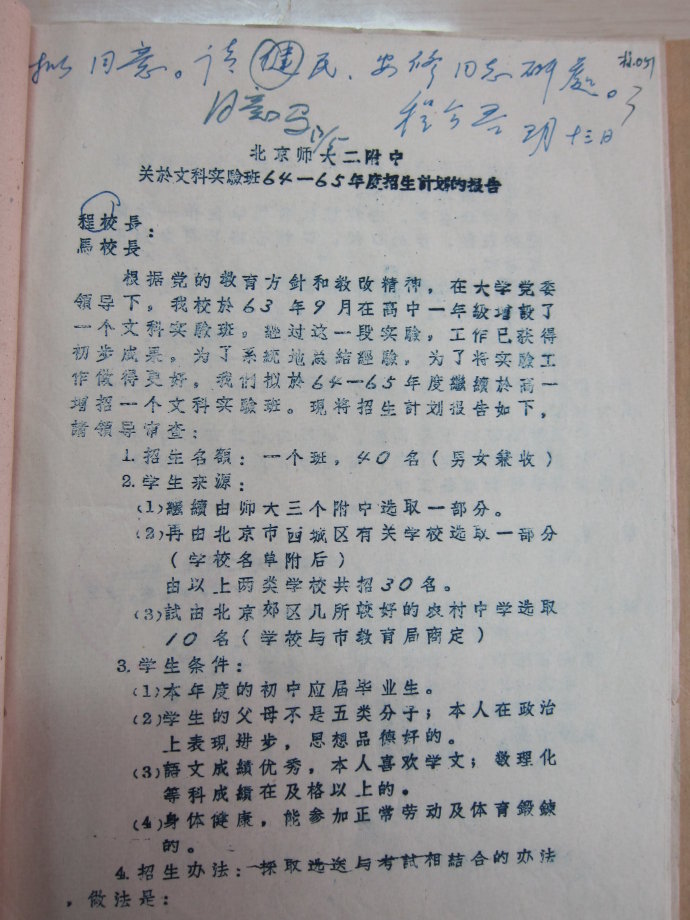 拟同意。请健民、安修同志研处。
同意 马 13/5 程今吾 五月十三日
北京师大二附中
关於文科实验班64—65年度招生計划的报告
程校長
馬校長：
根据党的教育方針和教改精神，在大学党委
領导下，我校於63年9月在高中一年級增設了
一个文科实验班。經过这一段实驗，工作已获得
初步成果。为了系統地总結經驗，为了将实驗工
作做得更好，我們拟於64—65年度繼續於高一
增招一个文科实验班。現将招生計划报告如下，
請領导审查：
1.招生名額：一个班，40名（男女兼收）
2.学生来源：
(1)繼續由师大三个附中选取一部分。
(2)再由北京市西城区有关学校选取一部分
（学校名单附后）
由以上两类学校共招30名。
(3)試由北京郊区几所較好的农村中学选取
10名（学校与市教育局商定）
3.学生条件：
(1)本年度的初中应届毕业生。
(2)学生的父母不是五类分子；本人在政治
上表現进步，思想品德好的。
(3)語文成績优秀，本人喜欢学文；数理化
等科成績在及格以上的。
(4)身体健康，能参加正常劳动及体育鍛鍊
的。
4.招生办法：採取选送与考試相結合的办法
，做法是：